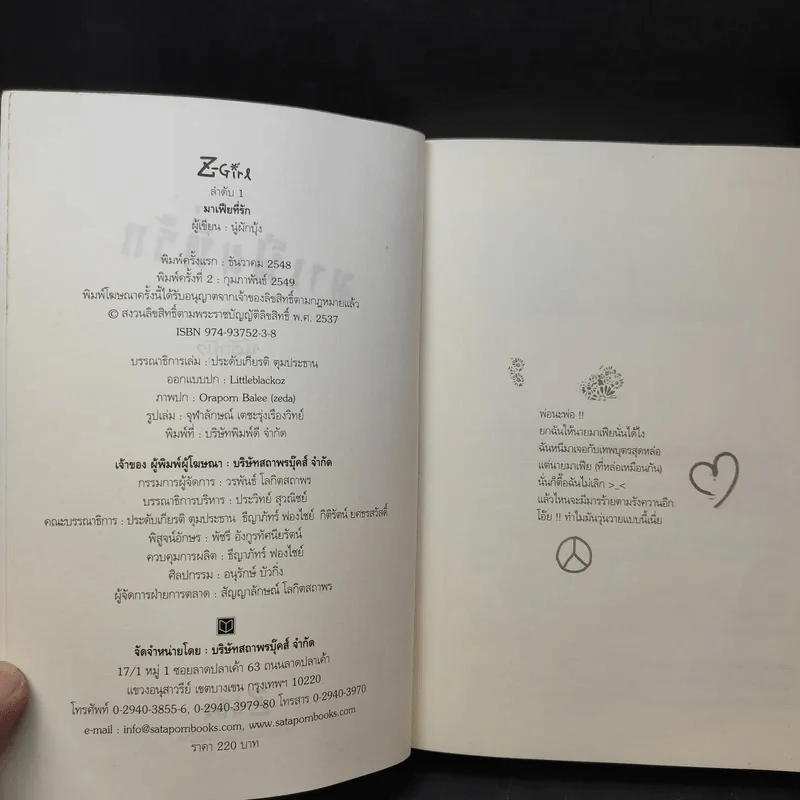 Z-Girl
ลำดับ 1
มาเฟียที่รัก
ผู้เขียน : นู๋ผักบุ้ง
พิมพ์ครั้งแรก : ธันวาคม 2548
พิมพ์ครั้งที่ 2 : กุมภาพันธ์ 2549
พิมพ์โฆษณาครั้งนี้ได้รับอนุญาตจากเจ้าของลิขสิทธิ์ตามกฎหมายแล้ว
© สงวนลิขสิทธิ์ตามพระราชบัญญัติลิขสิทธิ์ พ.ศ. 2537
ISBN 974-93752-3-8
บรรณาธิการเล่ม : ประดับเกียรติ ตุมประธาน
ออกแบบปก : Littleblackoz
ภาพปก : Oraporn Balee (zeda)
รูปเล่ม : จุฬาลักษณ์ เตชะรุ่งเรืองวิทย์
พิมพ์ที่ : บริษัทพิมพ์ดี จำกัด
เจ้าของ ผู้พิมพ์ผู้โฆษณา : บริษัทสถาพรบุ๊คส์ จำกัด
กรรมการผู้จัดการ : วรพันธ์ โลกิตสถาพร
บรรณาธิการบริหาร : ประวิทย์ สุวณิชย์
คณะบรรณาธิการ : ประดับเกียรติ ตุมประธาน ธีญาภัทร์ ฟองไชย์ กิติรัตน์ ยศธรสวัสดิ์
พิสูจน์อักษร : พัชรี อังกูรทัศนียรัตน์
ควบคุมการผลิต : ธีญาภัทร์ ฟองไชย์
ศิลปกรรม : อนุรักษ์ บัวกิ่ง
ผู้จัดการฝ่ายการตลาด : สัญญาลักษณ์ โลกิตสถาพร
จัดจำหน่ายโดย : บริษัทสถาพรบุ๊คส์ จำกัด
17/1 หมู่ 1 ซอยลาดปลาเค้า 63 ถนนลาดปลาเค้า
แขวงอนุสาวรีย์ เขตบางเขน กรุงเทพฯ 10220
โทรศัพท์ 0-2940-3855-6, 0-2940-3979-80 โทรสาร 0-2940-3970
e-mail : info@satapornbooks.com, www.satapornbooks.com
ราคา 220 บาท
พ่อนะพ่อ !!
ยกฉันให้นายมาเฟียนั่นได้ไง
ฉันหนีมาเจอกับเทพบุตรสุดหล่อ
แต่นายมาเฟีย (ที่หล่อเหมือนกัน)
นั่นก็ตื๊อฉันไม่เลิก >_<
แล้วไหนจะมีมารร้ายตามรังควานอีก
โอ๊ย !! ทำไมมันวุ่นวายแบบนี้เนี่ย